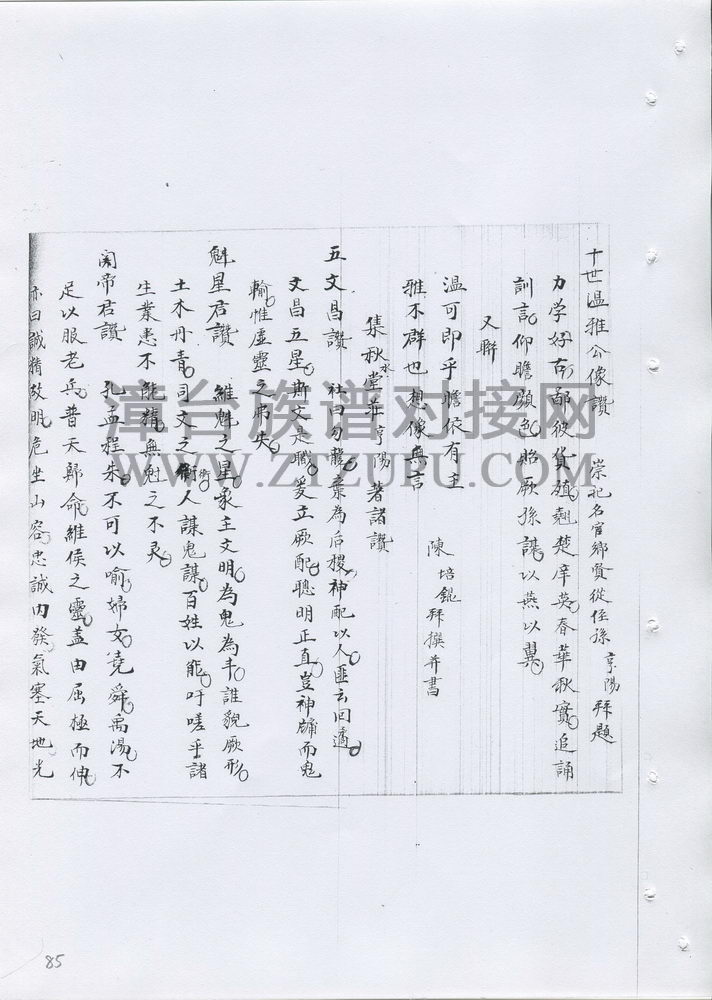 十世温雅公像讚 崇祀名宦鄉賢從侄孫亨陽拜題
力学好古鄙彼貨殖翹楚庠英春華秋實追誦
訓言仰瞻顔色貽厥孫謀以燕以翼
又聯
温可即乎瞻依有主
雅不群也想像無言 陳培錕拜撰并書
集秋水堂 亨陽著諸讚
五文昌讚 社曰勾龍棄為后稷神配以人匪云回遹
文昌五星斯文是職爰立厥配聰明正直豈神牖而鬼
輸惟虛靈之弗失
魁星君讚 維魁之星象主文明為鬼為斗誰貌厥形
土木丹青司文之衡人謀鬼謀百姓以能吁嗟乎諸
生業患不能精無魁之不灵
関帝君讚 孔孟程朱不可以喻婦女堯舜禹湯不
足以服老兵普天歸命維侯之靈蓋由屈極而伸
亦曰誠精故明危坐山容忠誠内發氣塞天地光
85
漳台族谱对接网
WWW.ZTZUPU.COM